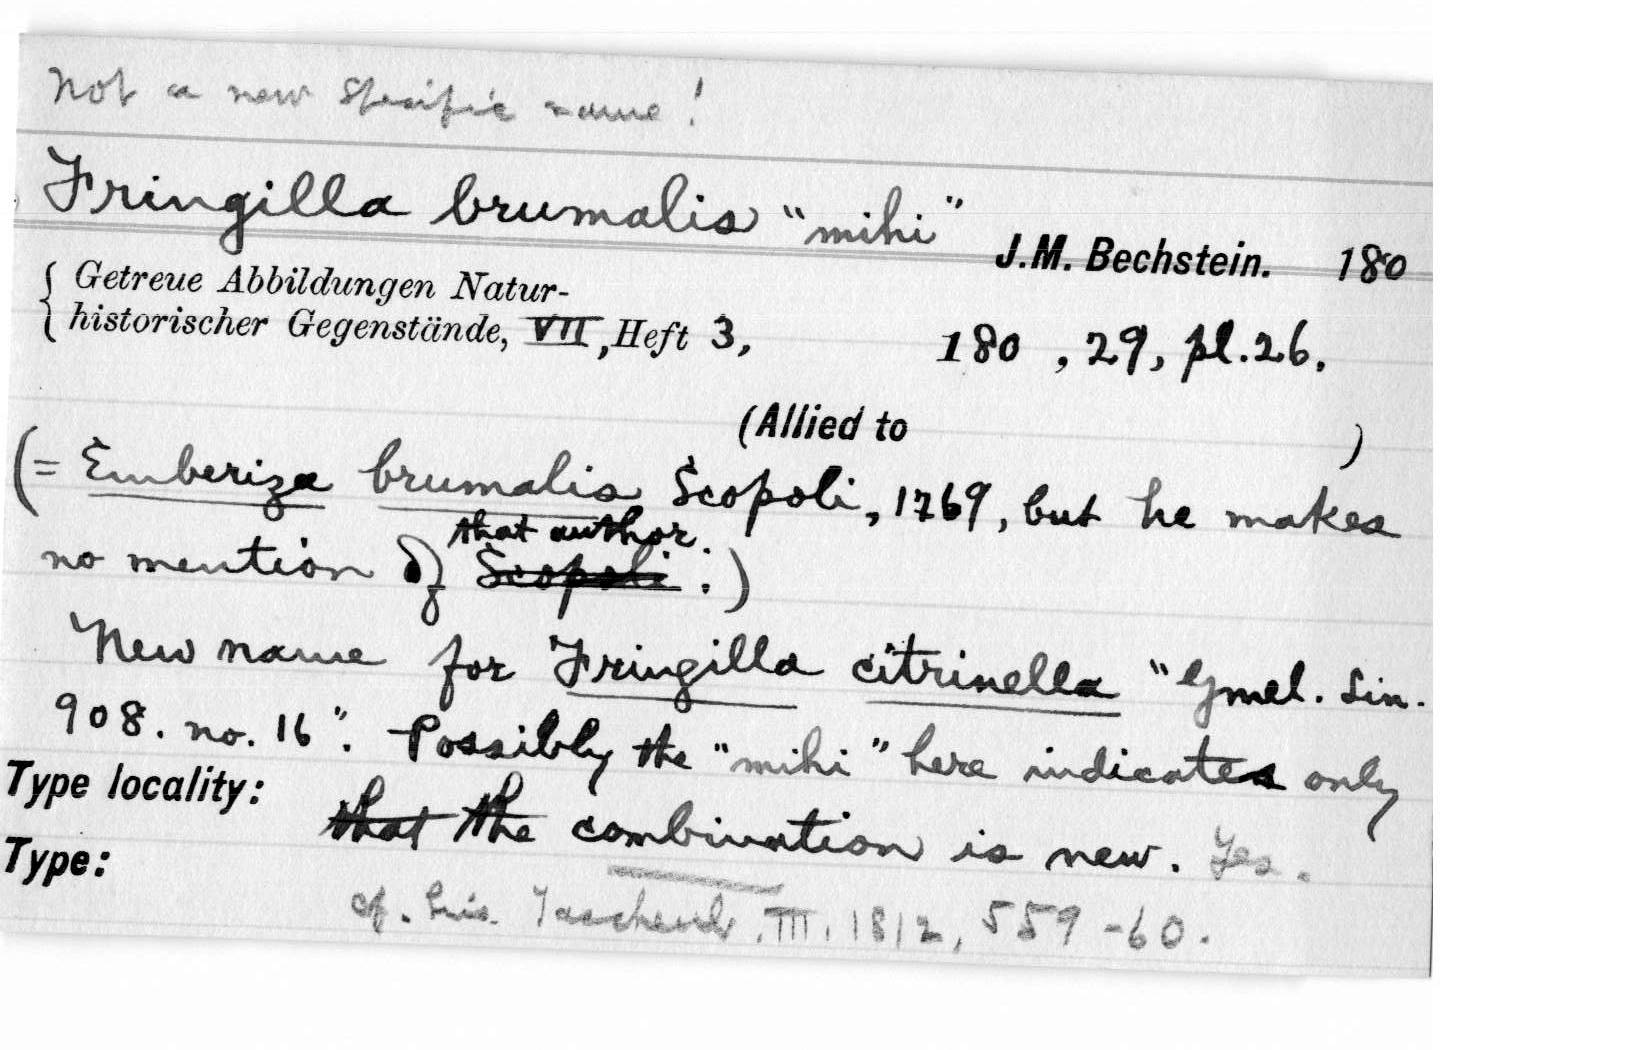 Not a new specific name!
Fringilla brumalis "mihi"
J.M. Bechstein. 180
{ Getreue Abbildungen Natur-
historischer Gegenstände, VII, Heft 3, 180 , 29, pl.26.
(Allied to )
(= Emberiza brumalis Scopoli, 1769, but he makes
that author.
no mention of Scopoli.)
New name for Fringilla citrinella "Gmel. Lin.
908. no. 16". Possibly the "mihi" here indicates only
Type locality:
that the combination is new. Yes.
Type:
cf. his Taschenb. III. 1812, 559-60.